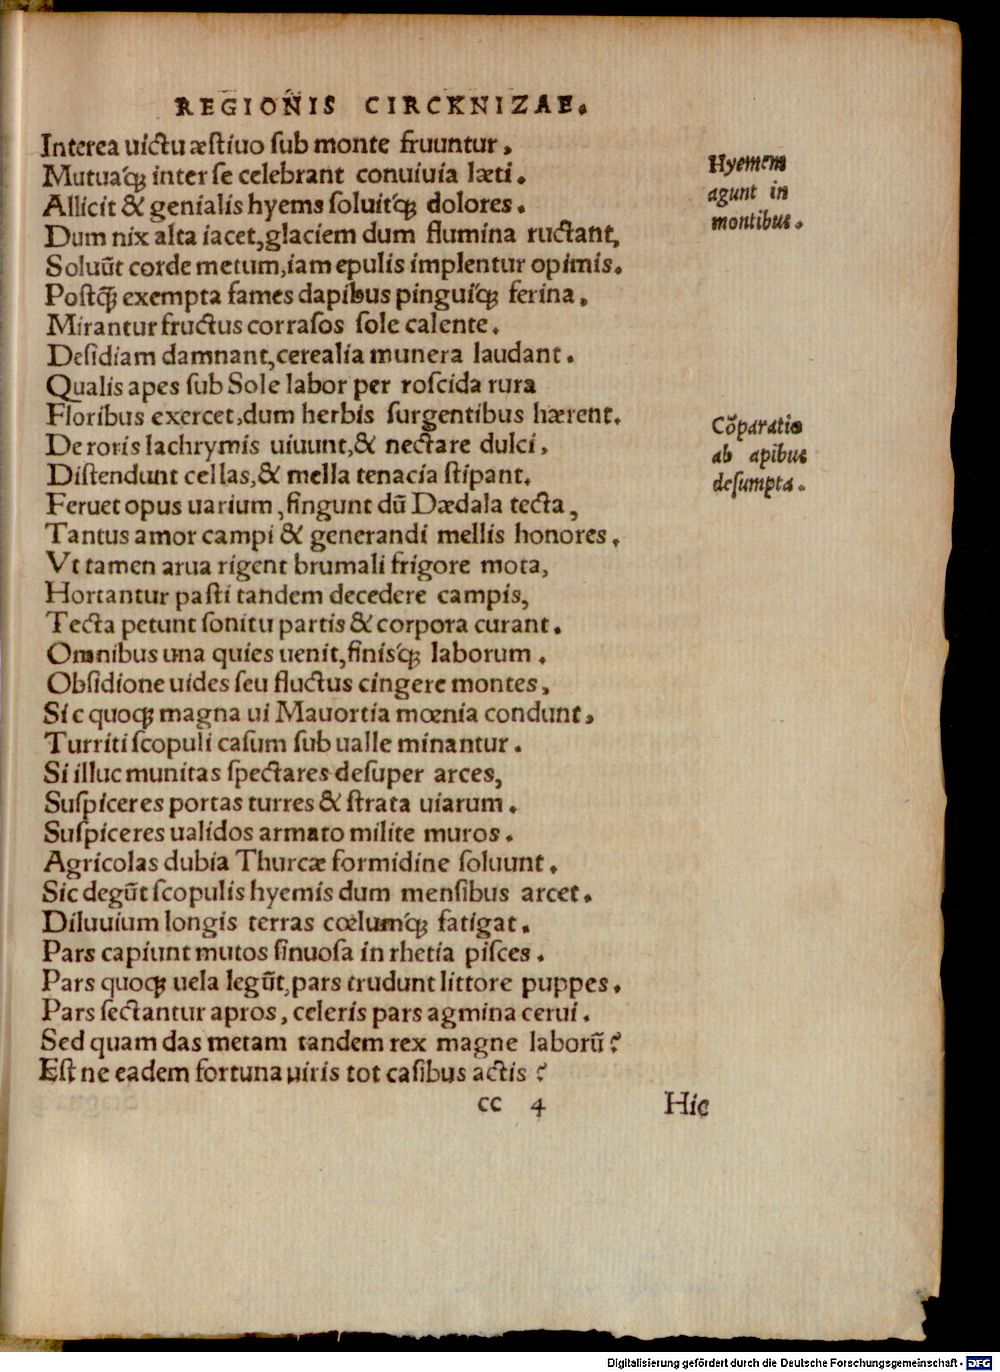 REGIONIS CIRCKNIZAE.
Interea uictu æstiuo sub monte fruuntur,
Mutuaq́ꝫ inter se celebrant conuiuia læti.
Allicit & genialis hyems soluitq́ꝫ dolores.
Dum nix alta iacet, glaciem dum flumina ructant,
Soluūt corde metum, iam epulis implentur opimis.
Postq̄ꝫ exempta fames dapibus pinguiq́ꝫ ferina,
Mirantur fructus corrasos sole calente.
Desidiam damnant, cerealia munera laudant.
Qualis apes sub Sole labor per roscida rura
Floribus exercet, dum herbis surgentibus hærent.
De roris lachrymis uiuunt, & nectare dulci,
Distendunt cellas, & mella tenacia stipant.
Feruet opus uarium, fingunt dū Dædala tecta,
Tantus amor campi & generandi mellis honores,
Vt tamen arua rigent brumali frigore mota,
Hortantur pasti tandem decedere campis,
Tecta petunt sonitu partis & corpora curant.
Omnibus una quies uenit, finisq́ꝫ laborum.
Obsidione uides seu fluctus cingere montes,
Sic quoqꝫ magna ui Mauortia mœnia condunt,
Turriti scopuli casum sub ualle minantur.
Si illuc munitas spectares desuper arces,
Suspiceres portas turres & strata uiarum.
Suspiceres ualidos armato milite muros.
Agricolas dubia Thurcæ formidine soluunt.
Sic degūt scopulis hyemis dum mensibus arcet.
Diluuium longis terras cœlumq́ꝫ fatigat.
Pars capiunt mutos sinuosa in rhetia pisces.
Pars quoqꝫ uela legūt, pars trudunt littore puppes.
Pars sectantur apros, celeris pars agmina cerui.
Sed quam das metam tandem rex magne laborū?
Est ne eadem fortuna uiris tot casibus actis?
cc 4 Hic
Hyemem
agunt in
montibus.
Cōparatio
ab apibus
desumpta.
Digitalisierung gefördert durch die Deutsche Forschungsgemeinschaft - DFG